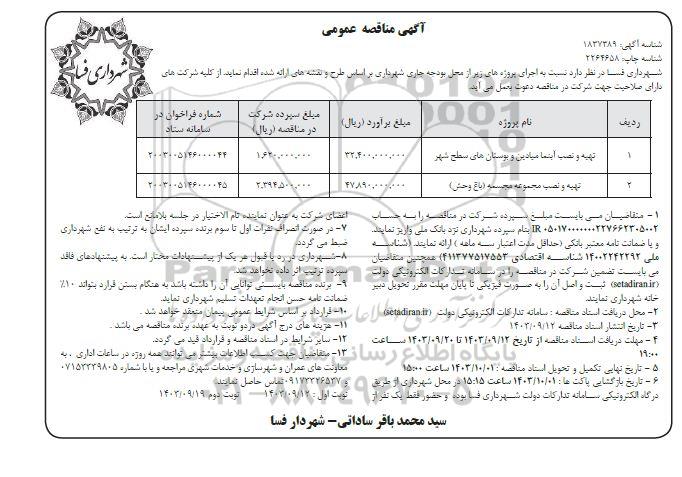 آگهی مناقصه عمومی
شهرداری فسا
شناسه آگهی: ۱۸۳۷۳۸۹
شناسه چاپ: ۲۲۶۴۶۵۸
شهرداری فسا در نظر دارد نسبت به اجرای پروژه های زیر از محل بودجه جاری شهرداری بر اساس طرح و نقشه های ارائه شده اقدام نماید. از کلیه شرکت های
دارای صلاحیت جهت شرکت در مناقصه دعوت بعمل می آید.
ردیف نام پروژه مبلغ برآورد (ریال) مبلغ سپرده شرکت در مناقصه (ریال) شماره فراخوان در سامانه ستاد
۱ تهیه و نصب آبنما میادین و بوستان های سطح شهر ۳۲,۴۰۰,۰۰۰,۰۰۰ ۱,۶۲۰,۰۰۰,۰۰۰ ۲۰۰۳۰۰۵۱۴۶۰۰۰۰۴۴
۲ تهیه و نصب مجموعه مجسمه (باغ وحش) ۴۷,۸۹۰,۰۰۰,۰۰۰ ۲,۳۹۴,۵۰۰,۰۰۰ ۲۰۰۳۰۰۵۱۴۶۰۰۰۰۴۵
۱- متقاضیان می بایست مبلغ سپرده شرکت در مناقصه را به حساب
بنام سپرده شهرداری نزد بانک ملی واریز نمایند.
و یا ضمانت نامه معتبر بانکی (حداقل مدت اعتبار سه ماهه) ارائه نمایند. (شناسه
ملی ۱۴۰۰۲۲۴۲۲۹۲ شناسه اقتصادی ۴۱۱۳۷۷۵۱۷۵۵۳) همچنین متقاضیان
می بایست تضمین شرکت در مناقصه را در سامانه تدارکات الکترونیکی دولت
(setadiran.ir) ثبت و اصل آن را به صورت فیزیکی تا پایان مهلت مقرر تحویل دبیر
خانه شهرداری نمایند.
۲- محل دریافت اسناد مناقصه : سامانه تدارکات الکترونیکی دولت (setadiran.ir)
۳- تاریخ انتشار اسناد مناقصه ۱۴۰۳/۰۹/۱۲
۴- مهلت دریافت اسناد مناقصه از تاریخ ۱۴۰۳/۰۹/۱۲ تا ۱۴۰۳/۰۹/۲۰ ساعت
۱۹:۰۰
۵- تاریخ نهایی تکمیل و تحویل اسناد مناقصه : ۱۴۰۳/۱۰/۰۱ ساعت ۱۵:۰۰
۶- تاریخ بازگشایی پاکت ها : ۱۴۰۳/۱۰/۰۱ ساعت ۱۵:۱۵ در محل شهرداری از طریق
درگاه الکترونیکی سامانه تدارکات دولت شهرداری فسا بوده و حضور فقط یک نفر از
اعضای شرکت به عنوان نماینده تام الاختیار در جلسه بلامانع است.
۷- در صورت انصراف نفرات اول تا سوم برنده سپرده ایشان به ترتیب به نفع شهرداری
ضبط می گردد.
۸- شهرداری در رد یا قبول هر یک از پیشنهادات مختار است. به پیشنهادهای فاقد
سپرده ترتیب اثر داده نخواهد شد.
۹- برنده مناقصه بایستی توانایی آن را داشته باشد به هنگام بستن قرارد بتواند ۱۰٪
ضمانت نامه حسن انجام تعهدات تسلیم شهرداری نماید.
۱۰- قرارداد بر اساس شرایط عمومی پیمان منعقد خواهد شد.
۱۱- هزینه های درج آگهی در دو نوبت به عهده برنده مناقصه می باشد.
۱۲- سایر شرایط در اسناد مناقصه و قرارداد قید می گردد.
۱۳- متقاضیان جهت کسب اطلاعات بیشتر می توانند همه روزه در ساعات اداری ، به
معاونت های عمران و شهرسازی و خدمات شهری مراجعه و یا با شماره ۰۷۱۵۳۳۳۹۸۰۵
و ۰۹۱۷۳۳۲۶۵۳۷ تماس حاصل نمایند.
نوبت اول : ۱۴۰۳/۰۹/۱۲ نوبت دوم ۱۴۰۳/۰۹/۱۹
سید محمد باقر ساداتی- شهردار فسا